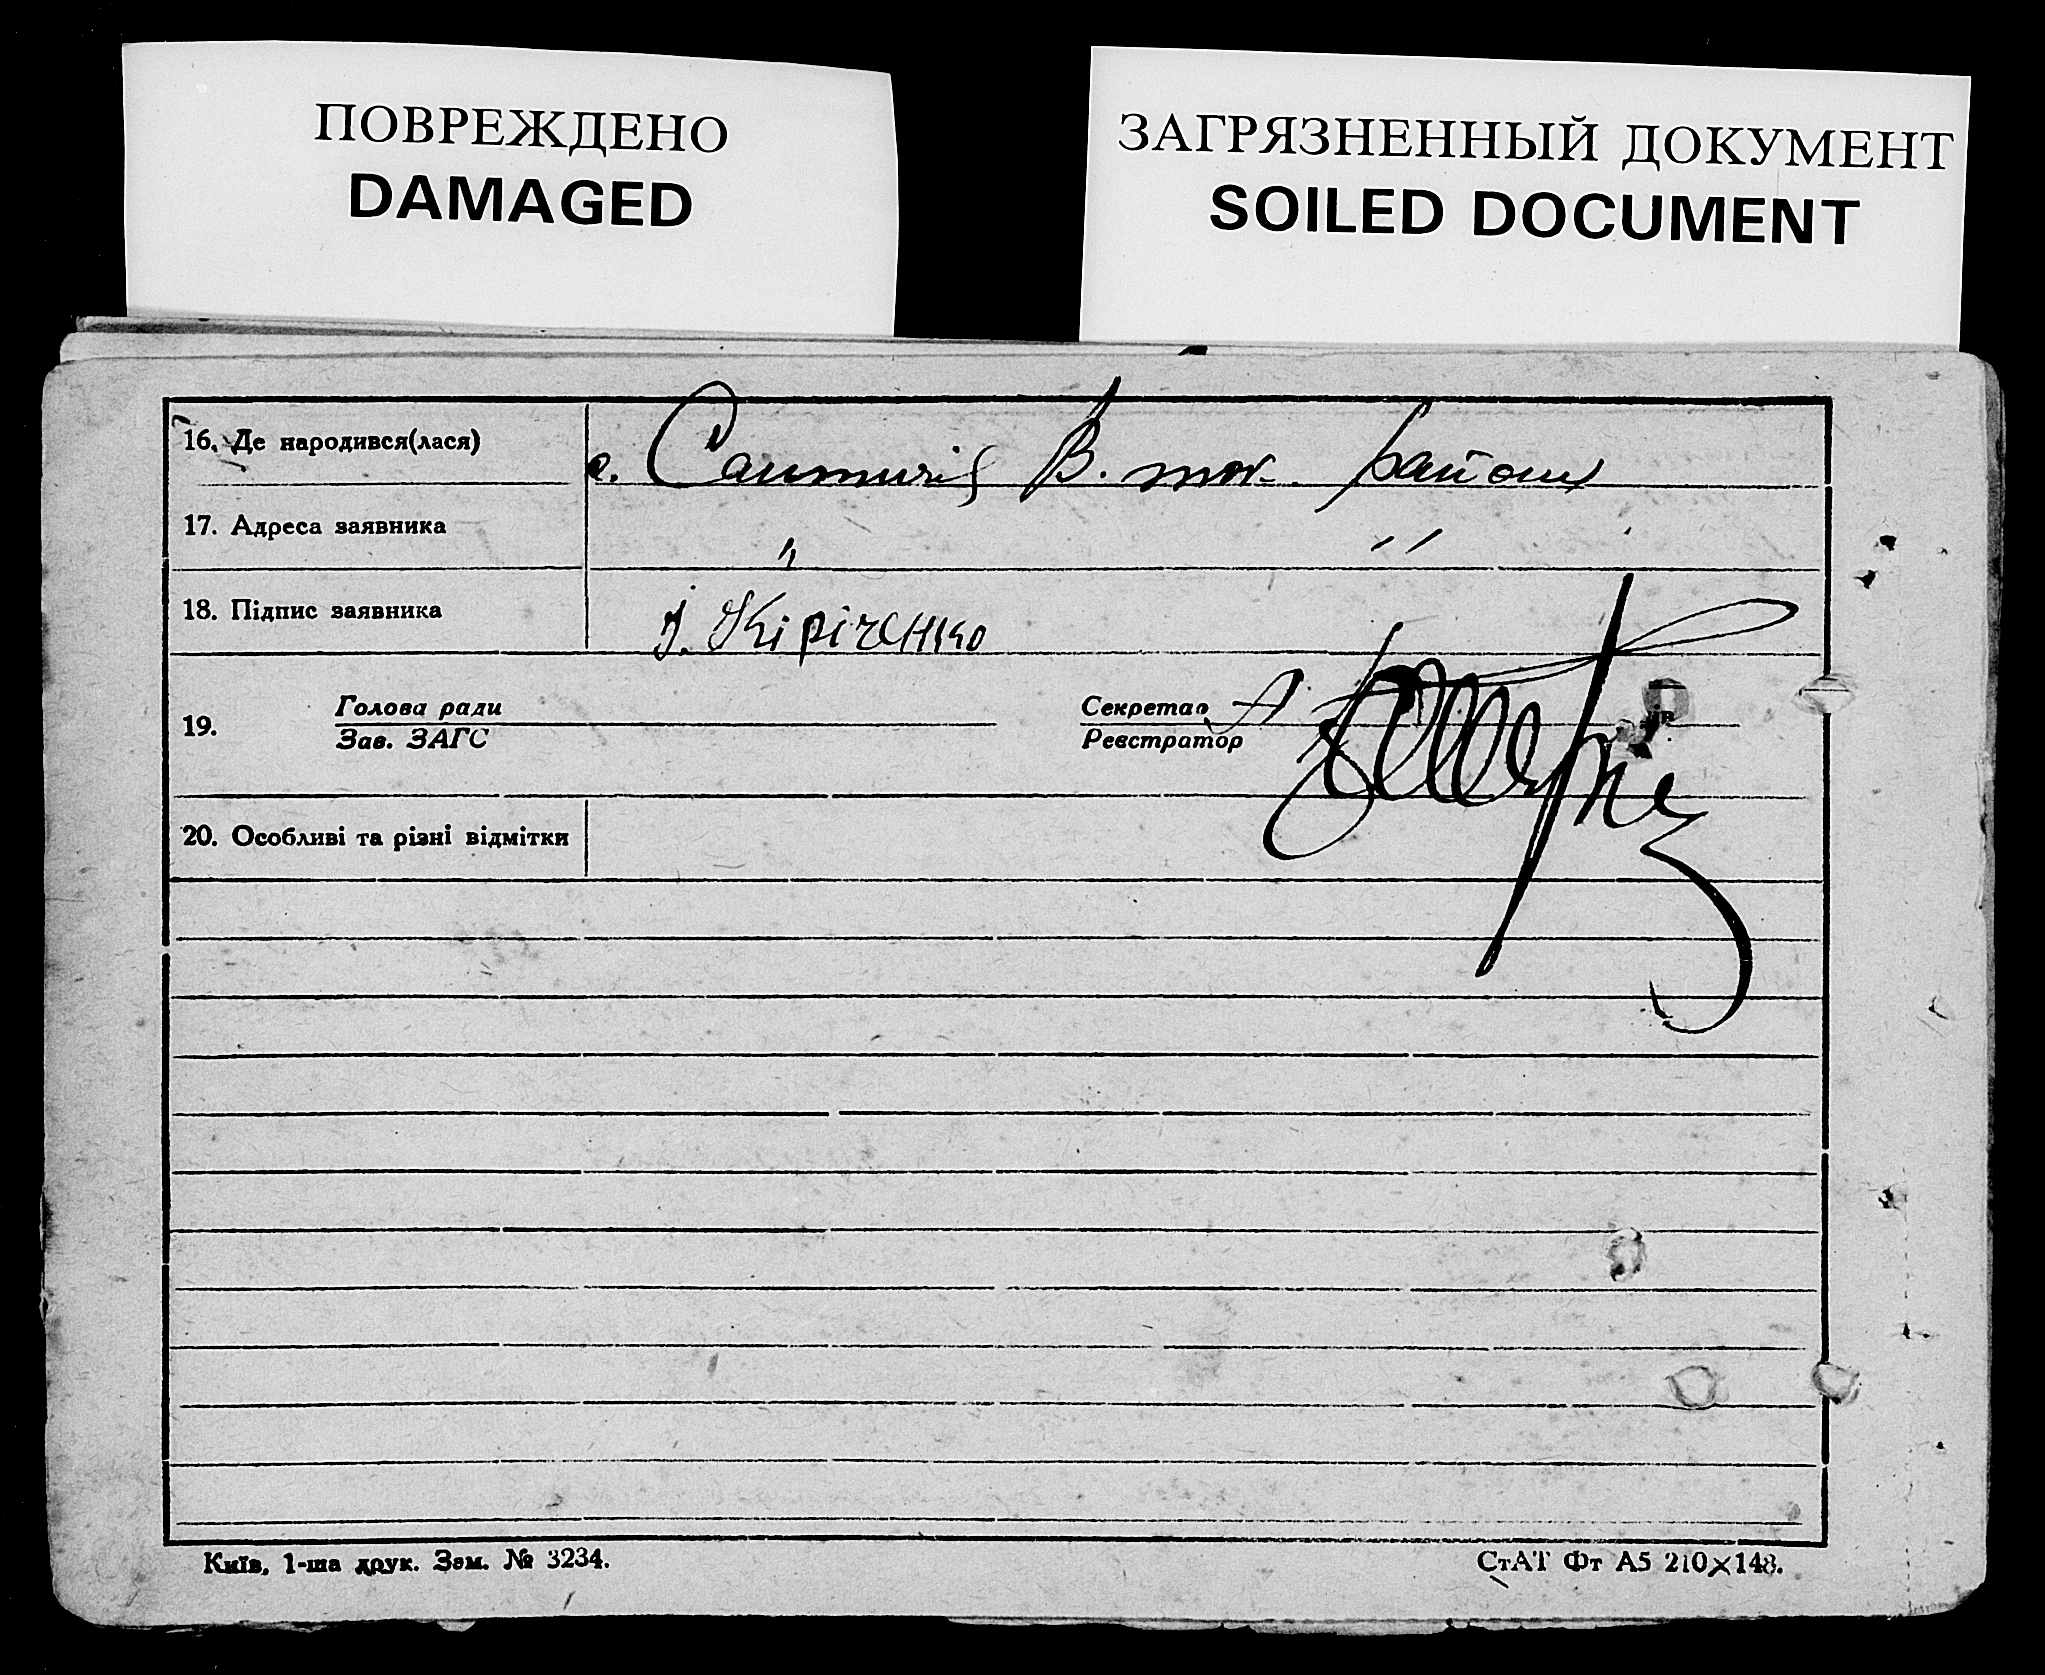 ПОВРЕЖДЕНО
DAMAGED
ЗАГРЯЗНЕННЫЙ ДОКУМЕНТ
SOILED DOCUMENT
16. Де народився(лася) с. В. ток. району
17. Адреса заявника " "
18. Підпис заявника І. Кіріченко
19. Голова ради Секретар
Зав. ЗАГС Реєстратор
20. Особливі та різні відмітки
Київ, 1-ша друк. Зам. № 3234.
СтАТ Фт А5 210×148.